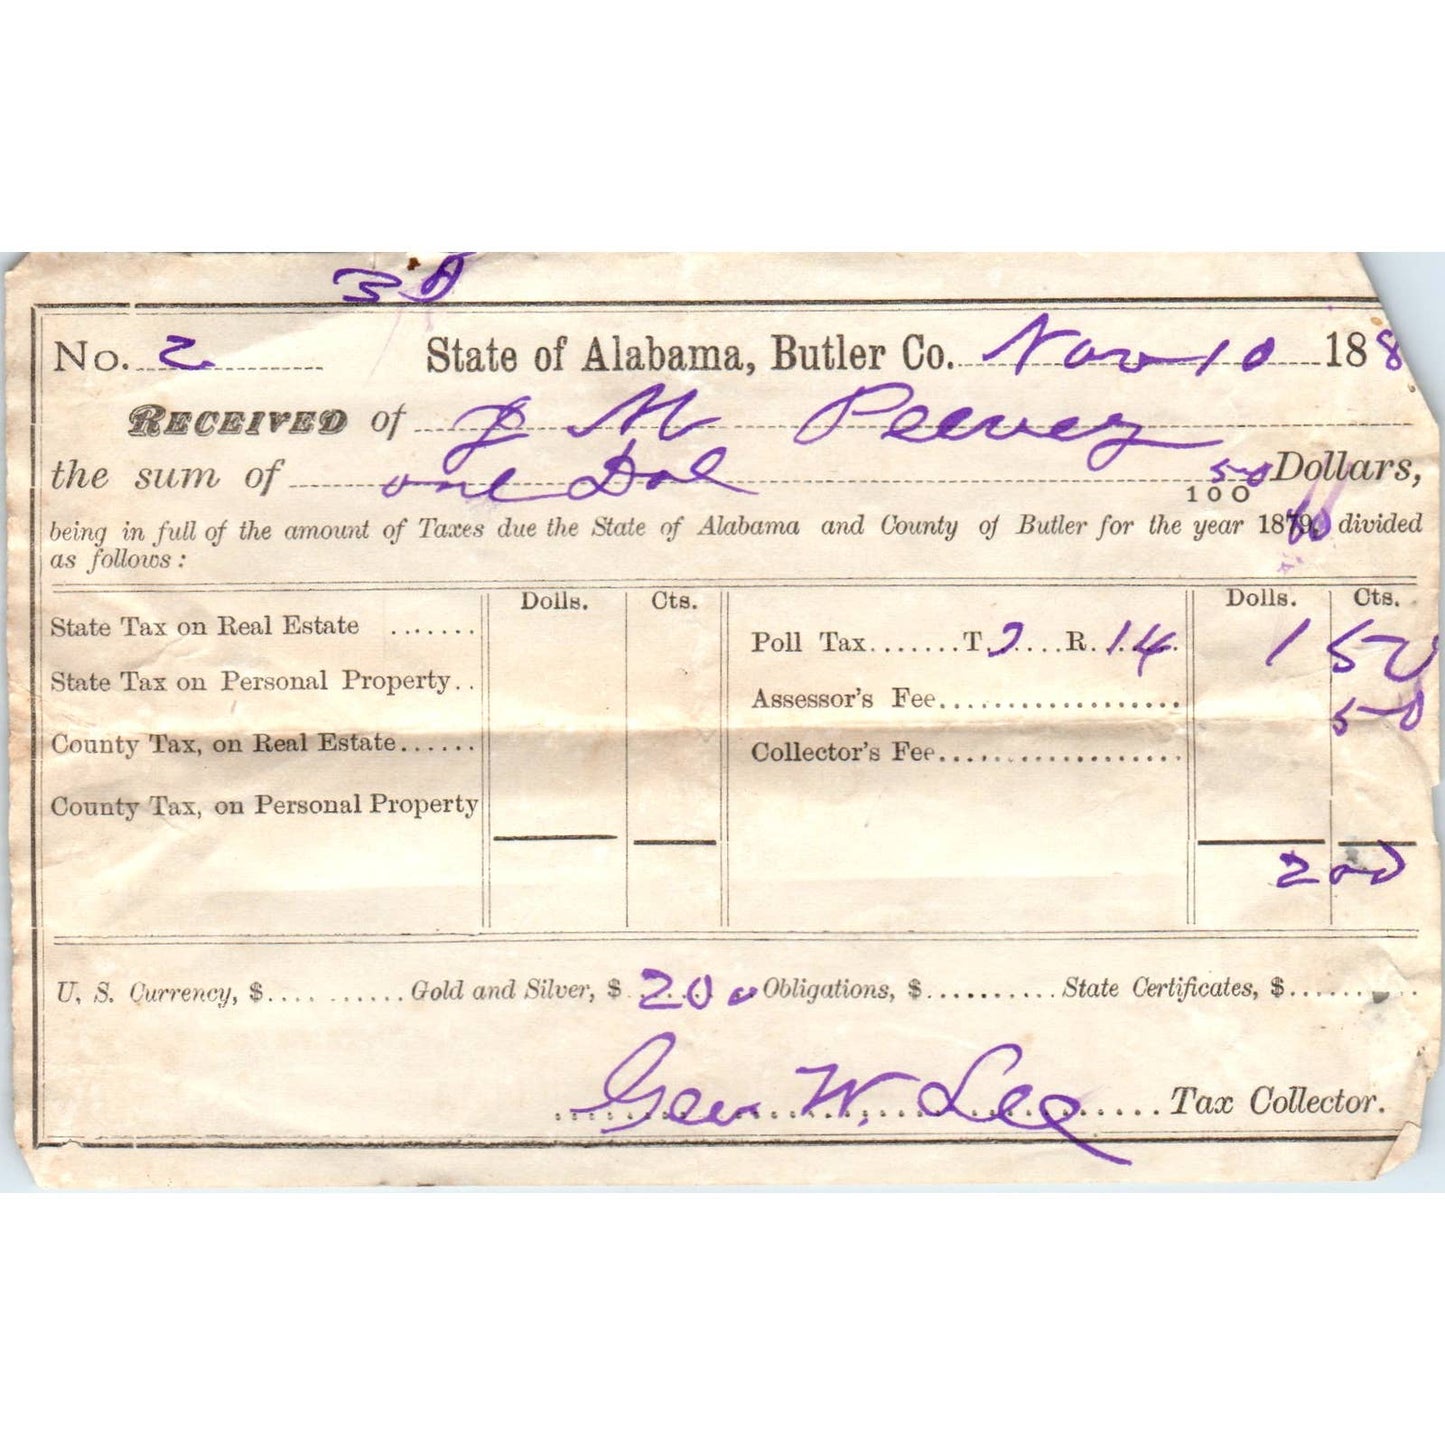 3d
No. 2 State of Alabama, Butler Co. Nov 10 188
RECEIVED of J M Peevey
the sum of one Dol 50/100 Dollars,
being in full of the amount of Taxes due the State of Alabama and County of Butler for the year 1879, 80 divided
as follows:
Dolls. Cts. Dolls. Cts.
State Tax on Real Estate ....... Poll Tax.......T.7....R.14. 1 50
State Tax on Personal Property.. Assessor's Fee.................. 50
County Tax, on Real Estate...... Collector's Fee..................
County Tax, on Personal Property
2 00
U. S. Currency, $.... .......Gold and Silver, $ 2.00 Obligations, $...........State Certificates, $..........
Geo. W. Lee Tax Collector.